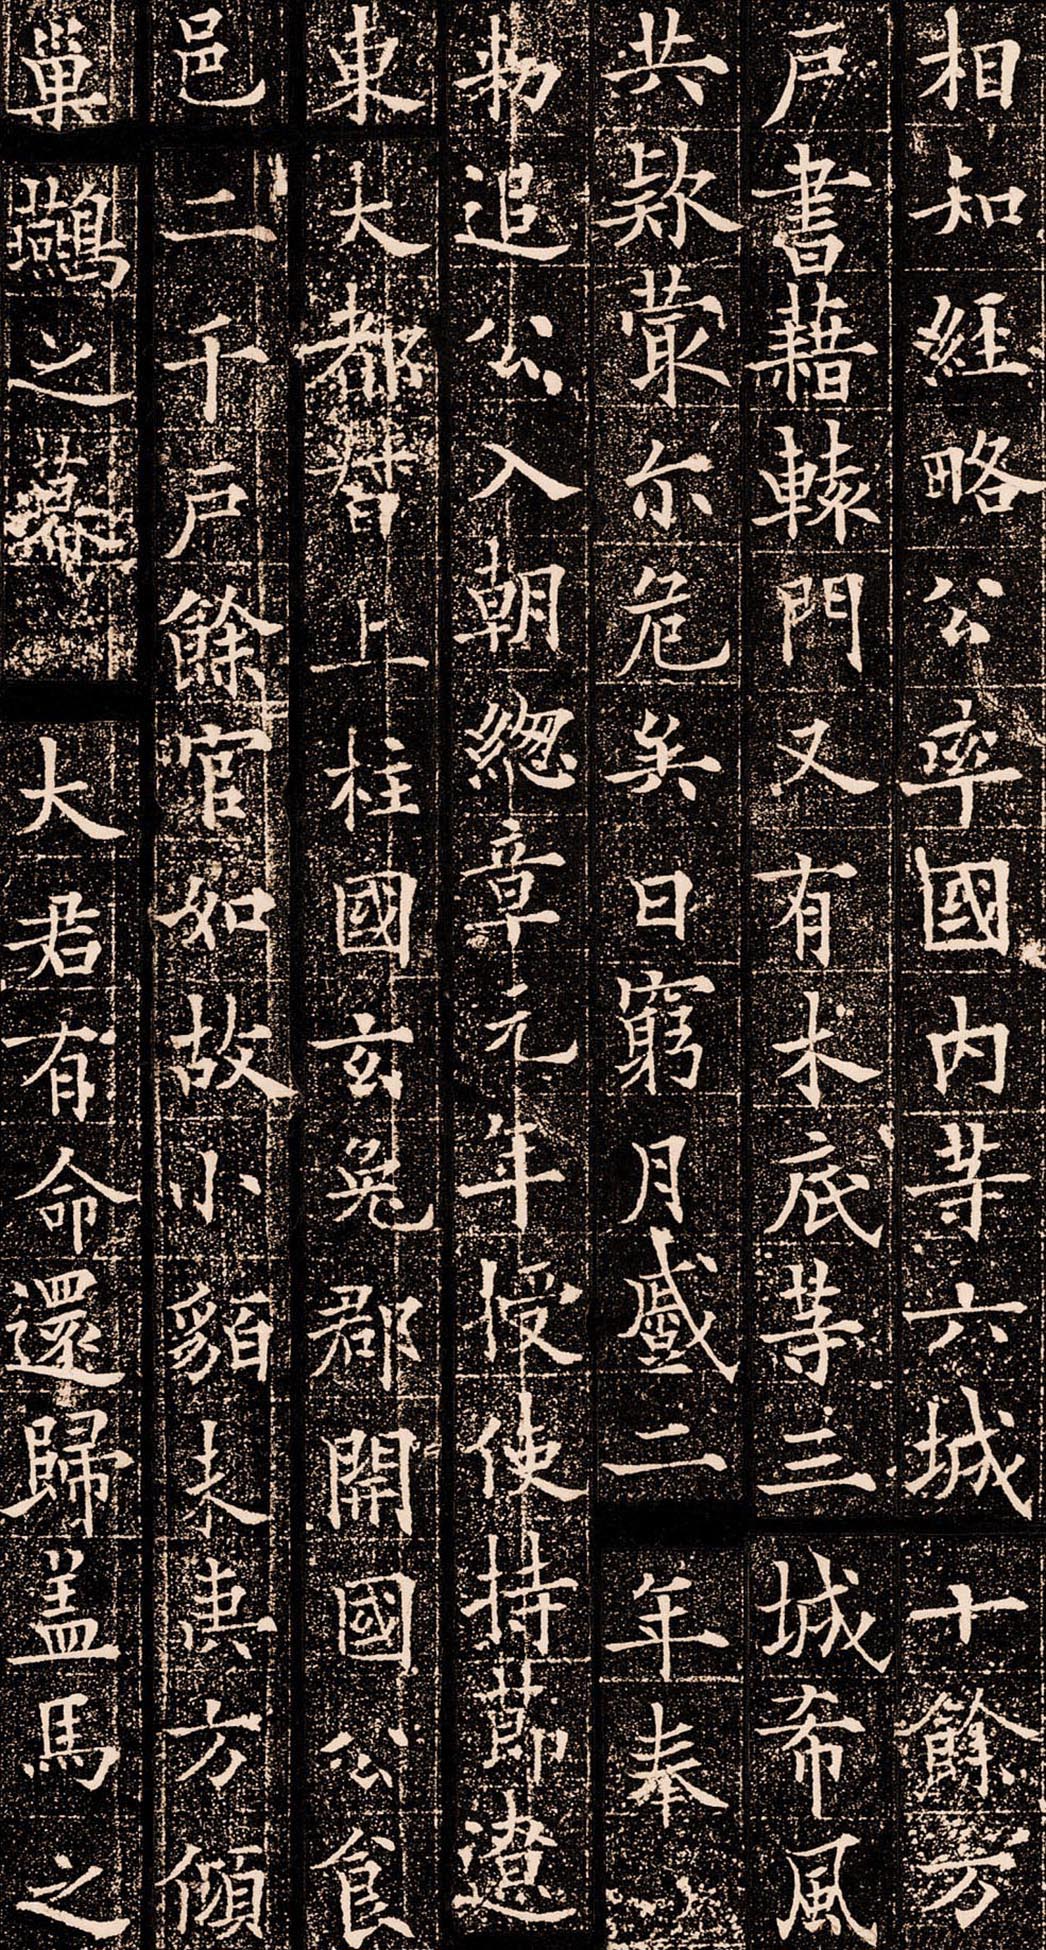 相知經略公率國内等六城十餘万
戶書藉轅門又有木底等三城希風
共款蕞尒危矣日窮月蹙二年奉
勑追公入朝總章元年授使持節遼
東大都督上柱國玄菟郡開國公食
邑二千戶餘官如故小貊未夷方傾
巢鷰之幕大君有命還歸盖馬之